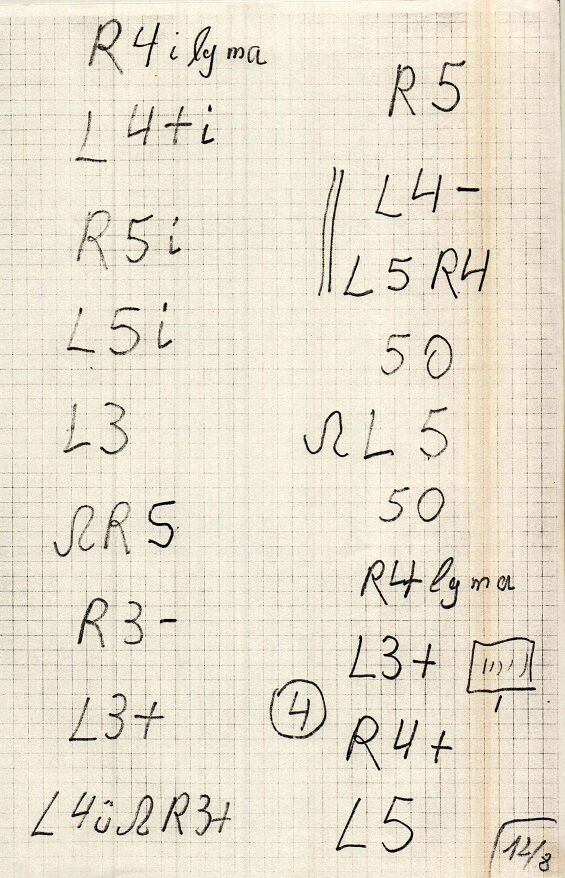 R4ilyma
L4+i
R5i
L5i
L3
ΩR5
R3-
L3+
L4üΩR3+
R5
L4-
L5R4
50
ΩL5
50
R4lyma
L3+
4
R4+
L5
12/8